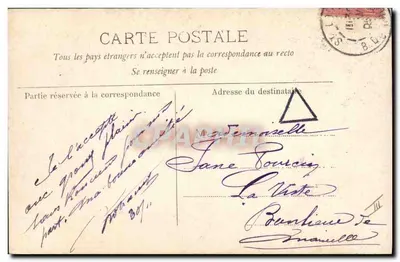 CARTE POSTALE
Tous les pays étrangers n'acceptent pas la correspondance au recto
Se renseigner à la poste
Partie réservée à la correspondance
Adresse du destinataire
Je l'accepte
avec grand plaisir
sans
part. une bonne amitié
Mademoiselle
Jane Pourcin
La Viste
Banlieue de
Marseille
III